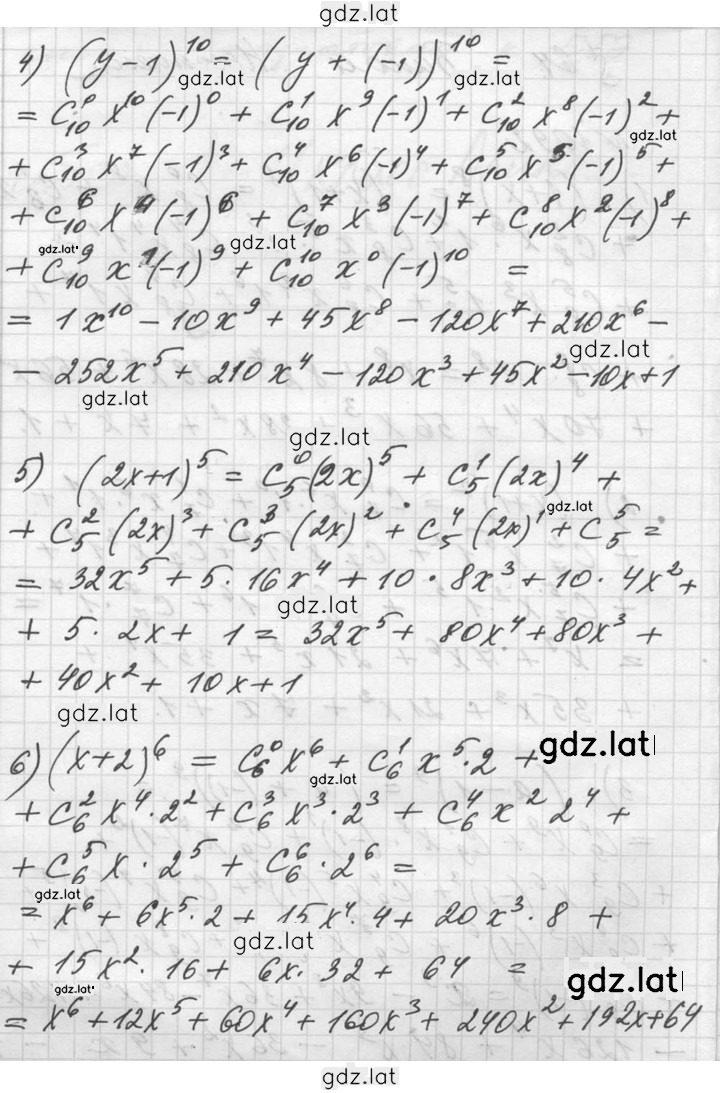 gdz.lat
4) (y-1)^10 = (y + (-1))^10 =
gdz.lat gdz.lat
= C_10^0 x^10 (-1)^0 + C_10^1 x^9 (-1)^1 + C_10^2 x^8 (-1)^2 +
gdz.lat
+ C_10^3 x^7 (-1)^3 + C_10^4 x^6 (-1)^4 + C_10^5 x^5 (-1)^5 +
+ C_10^6 x^4 (-1)^6 + C_10^7 x^3 (-1)^7 + C_10^8 x^2 (-1)^8 +
gdz.lat gdz.lat
+ C_10^9 x^1 (-1)^9 + C_10^10 x^0 (-1)^10 =
= 1x^10 - 10x^9 + 45x^8 - 120x^7 + 210x^6 -
gdz.lat
- 252x^5 + 210x^4 - 120x^3 + 45x^2 - 10x + 1
gdz.lat
gdz.lat
5) (2x+1)^5 = C_5^0 (2x)^5 + C_5^1 (2x)^4 +
gdz.lat
+ C_5^2 (2x)^3 + C_5^3 (2x)^2 + C_5^4 (2x)^1 + C_5^5 =
= 32x^5 + 5·16x^4 + 10·8x^3 + 10·4x^2 +
gdz.lat
+ 5·2x + 1 = 32x^5 + 80x^4 + 80x^3 +
+ 40x^2 + 10x + 1
gdz.lat
gdz.lat
6) (x+2)^6 = C_6^0 x^6 + C_6^1 x^5·2 +
gdz.lat
+ C_6^2 x^4·2^2 + C_6^3 x^3·2^3 + C_6^4 x^2 2^4 +
+ C_6^5 x·2^5 + C_6^6·2^6 =
gdz.lat
= x^6 + 6x^5·2 + 15x^4·4 + 20x^3·8 +
gdz.lat
+ 15x^2·16 + 6x·32 + 64 =
gdz.lat gdz.lat
= x^6 + 12x^5 + 60x^4 + 160x^3 + 240x^2 + 192x + 64
gdz.lat